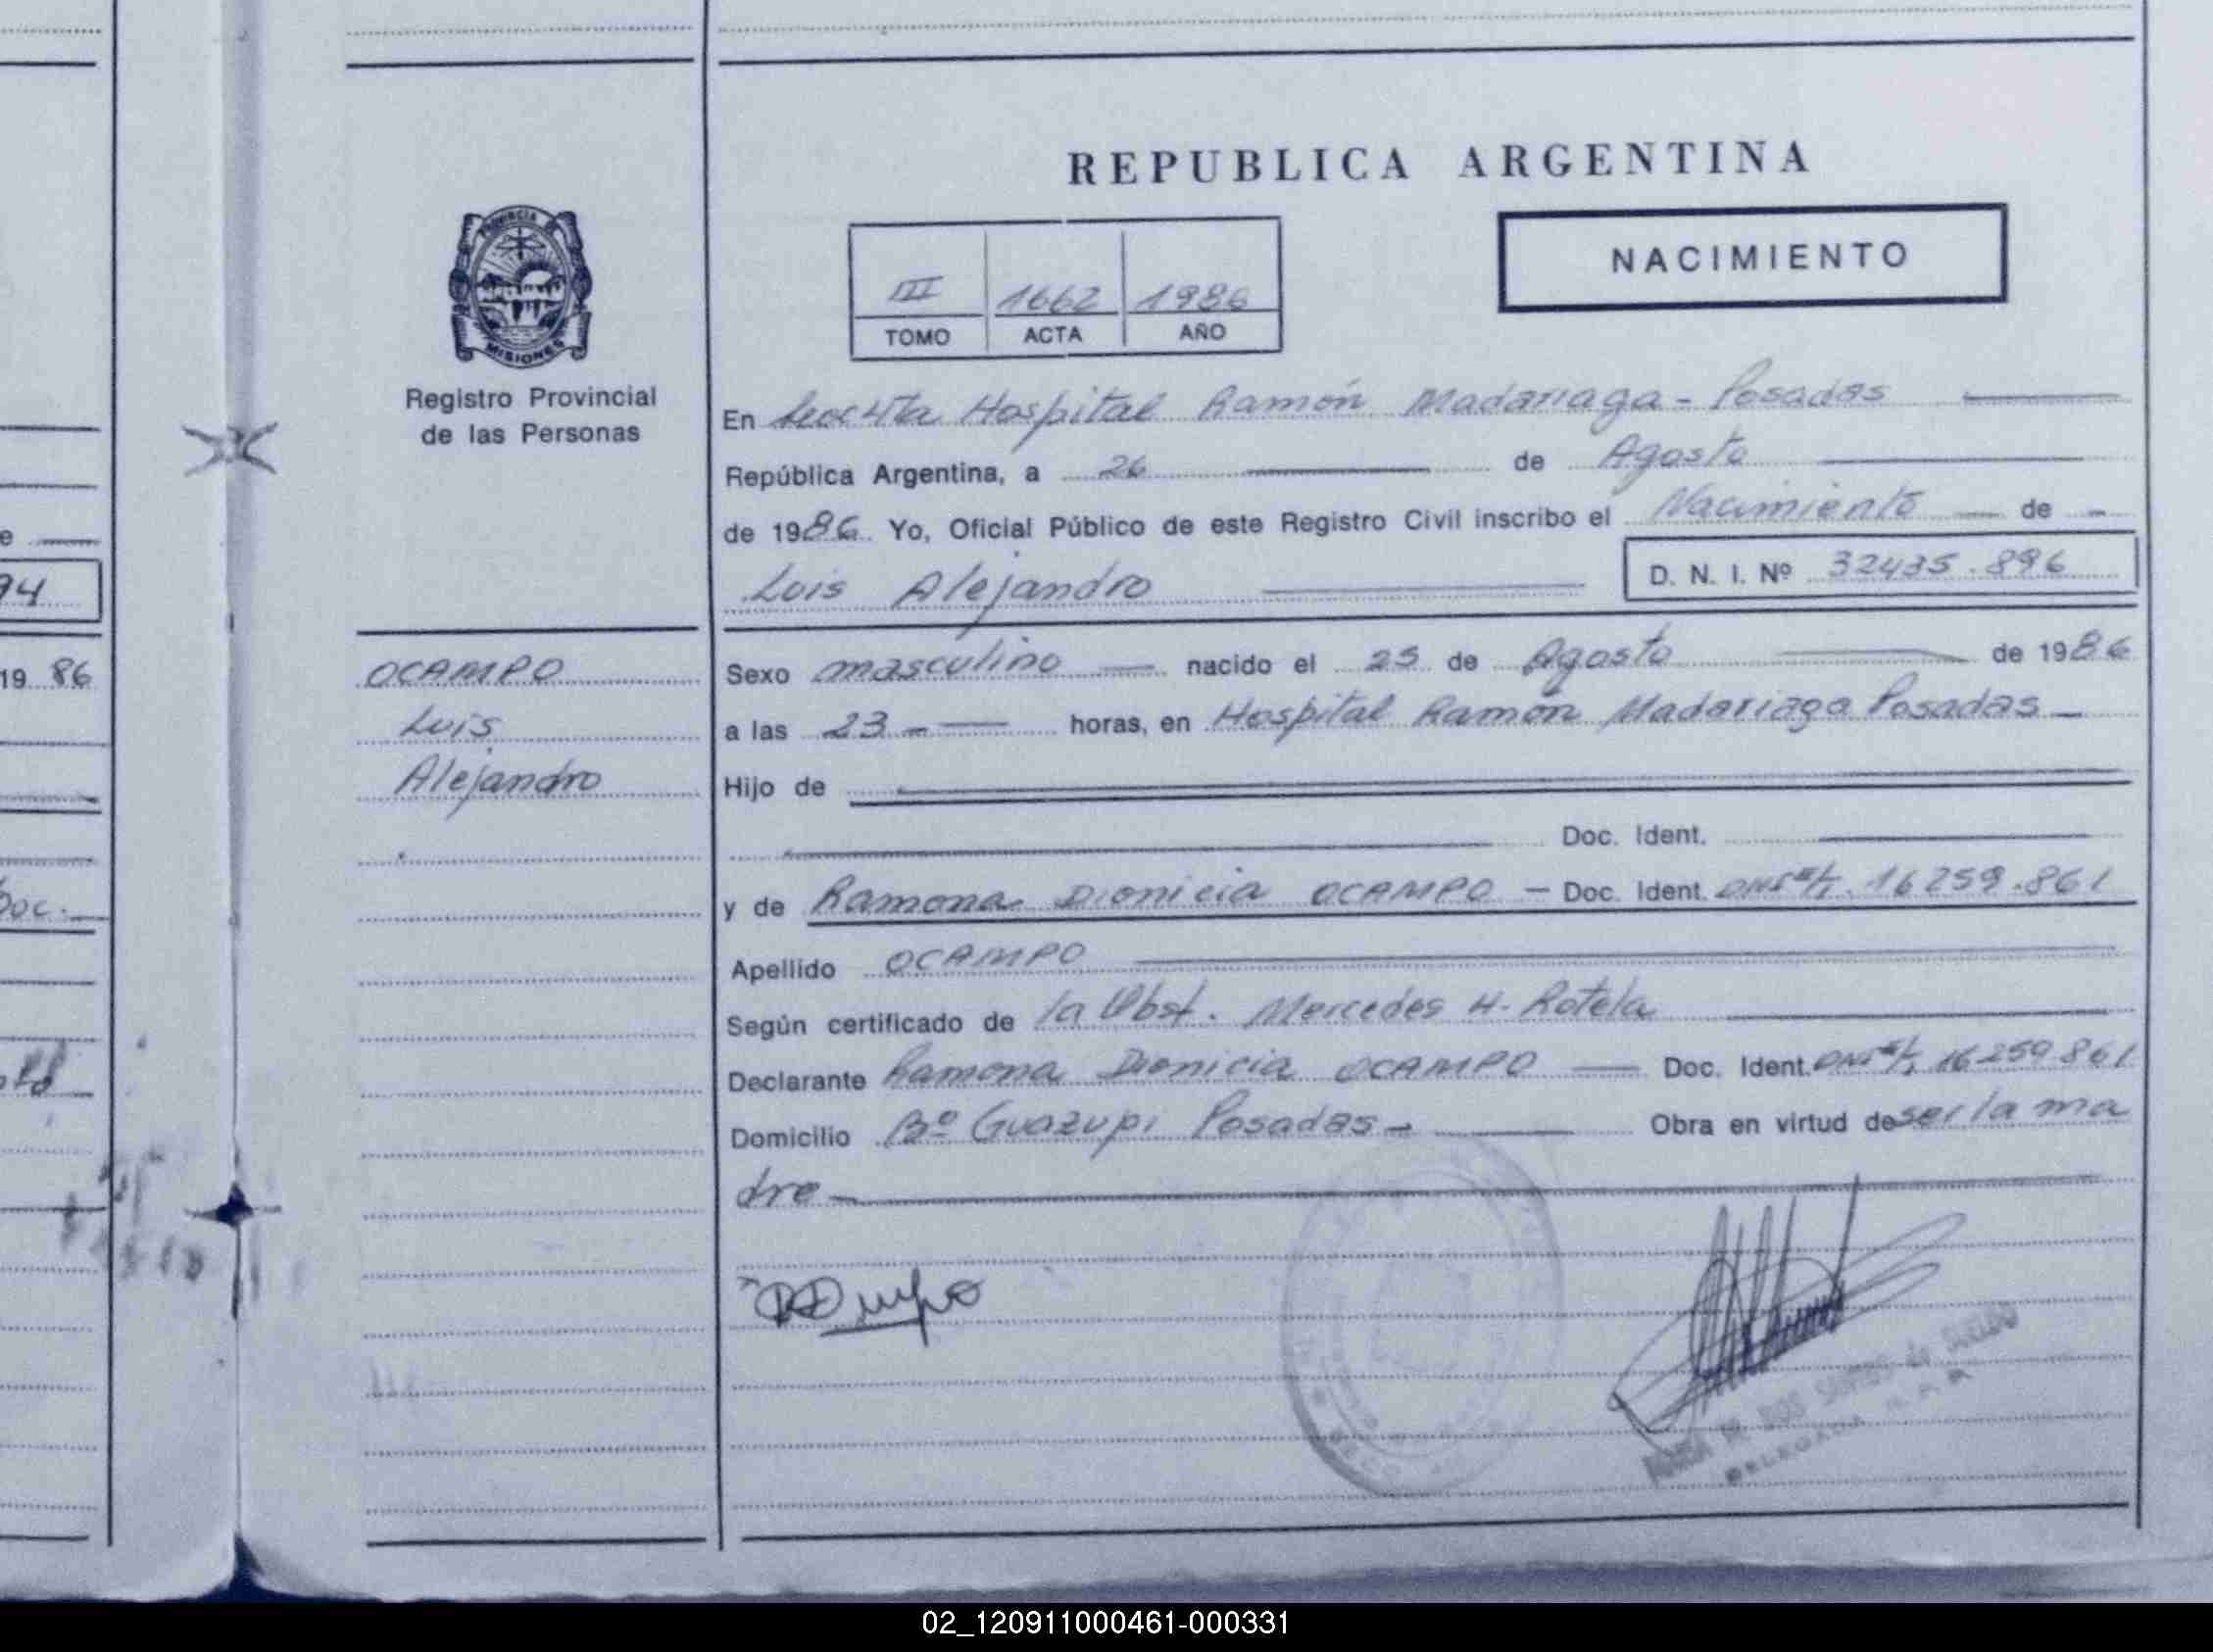 REPUBLICA ARGENTINA
NACIMIENTO
III 1662 1986
TOMO ACTA AÑO
PROVINCIA DE
MISIONES
Registro Provincial
de las Personas
En Secc 4ta Hospital Ramón Madariaga - Posadas
República Argentina, a 26 de Agosto
de 1986. Yo, Oficial Público de este Registro Civil inscribo el Nacimiento de
Luis Alejandro
D. N. I. Nº 32435.896
OCAMPO
Luis
Alejandro
Sexo masculino nacido el 25 de Agosto de 1986
a las 23 horas, en Hospital Ramón Madariaga Posadas
Hijo de
Doc. Ident.
y de Ramona Dionicia OCAMPO - Doc. Ident. 16259.861
Apellido OCAMPO
Según certificado de la Obst. Mercedes H. Rotela
Declarante Ramona Dionicia OCAMPO Doc. Ident. 16259861
Domicilio Bº Guazupi Posadas - Obra en virtud de ser la ma
dre
94
19 86
Doc.
02_120911000461-000331